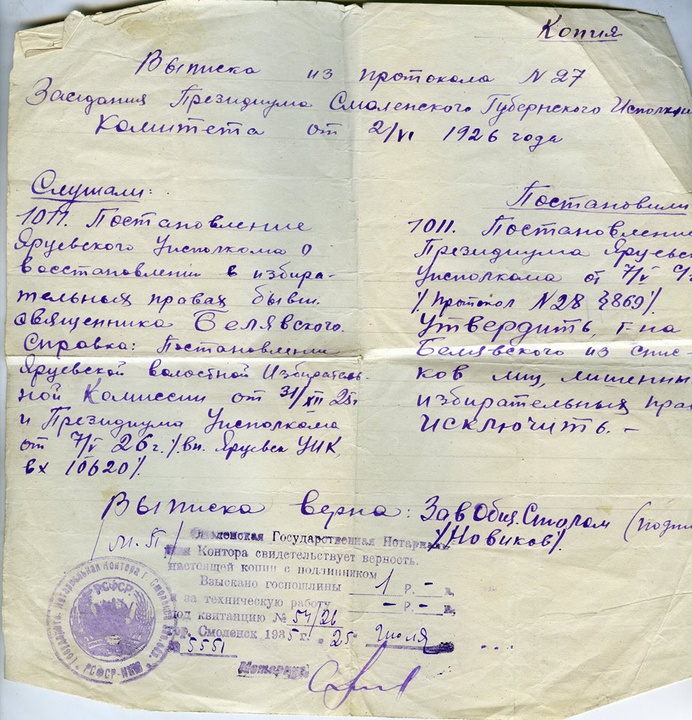 Копия
Выписка из протокола N 27
Заседания Президиума Смоленского Губернского Исполни
Комитета от 2/VI 1926 года
Слушали:
1011. Постановление
Ярцевского Уисполкома о
восстановлении в избира-
тельных провах бывш.
священника Белявского.
Справка: Постановлени
Ярцевской волостной Избиратель-
ной Комиссии от 31/XII 25г
и Президиума Уисполкома
от 7/V 26г. /вн. Ярцевск УИК,
вх 10620/.
Постановили
1011. Постановление
Президиума Ярцевск
Уисполкома от 7/V с/г
/Протокол N 28 §869/.
Утвердить, г-на
Белявского из спис-
ков лиц, лишенны
избирательных прав
исключить. –
Выписка верна: Зав Общ. Столом (подпи
/м.п/ /Новиков/.
Смоленская Государственная Нотариаль
ная Контора свидетельствует верность
настоящей копии с подлинником
Взыскано госпошлины 1 р. – к.
за техническую работу – р. – к.
под квитанцию № 54/26
гор. Смоленск 1935г. 25 Июля
№ 5551
Нотариус
РСФСР